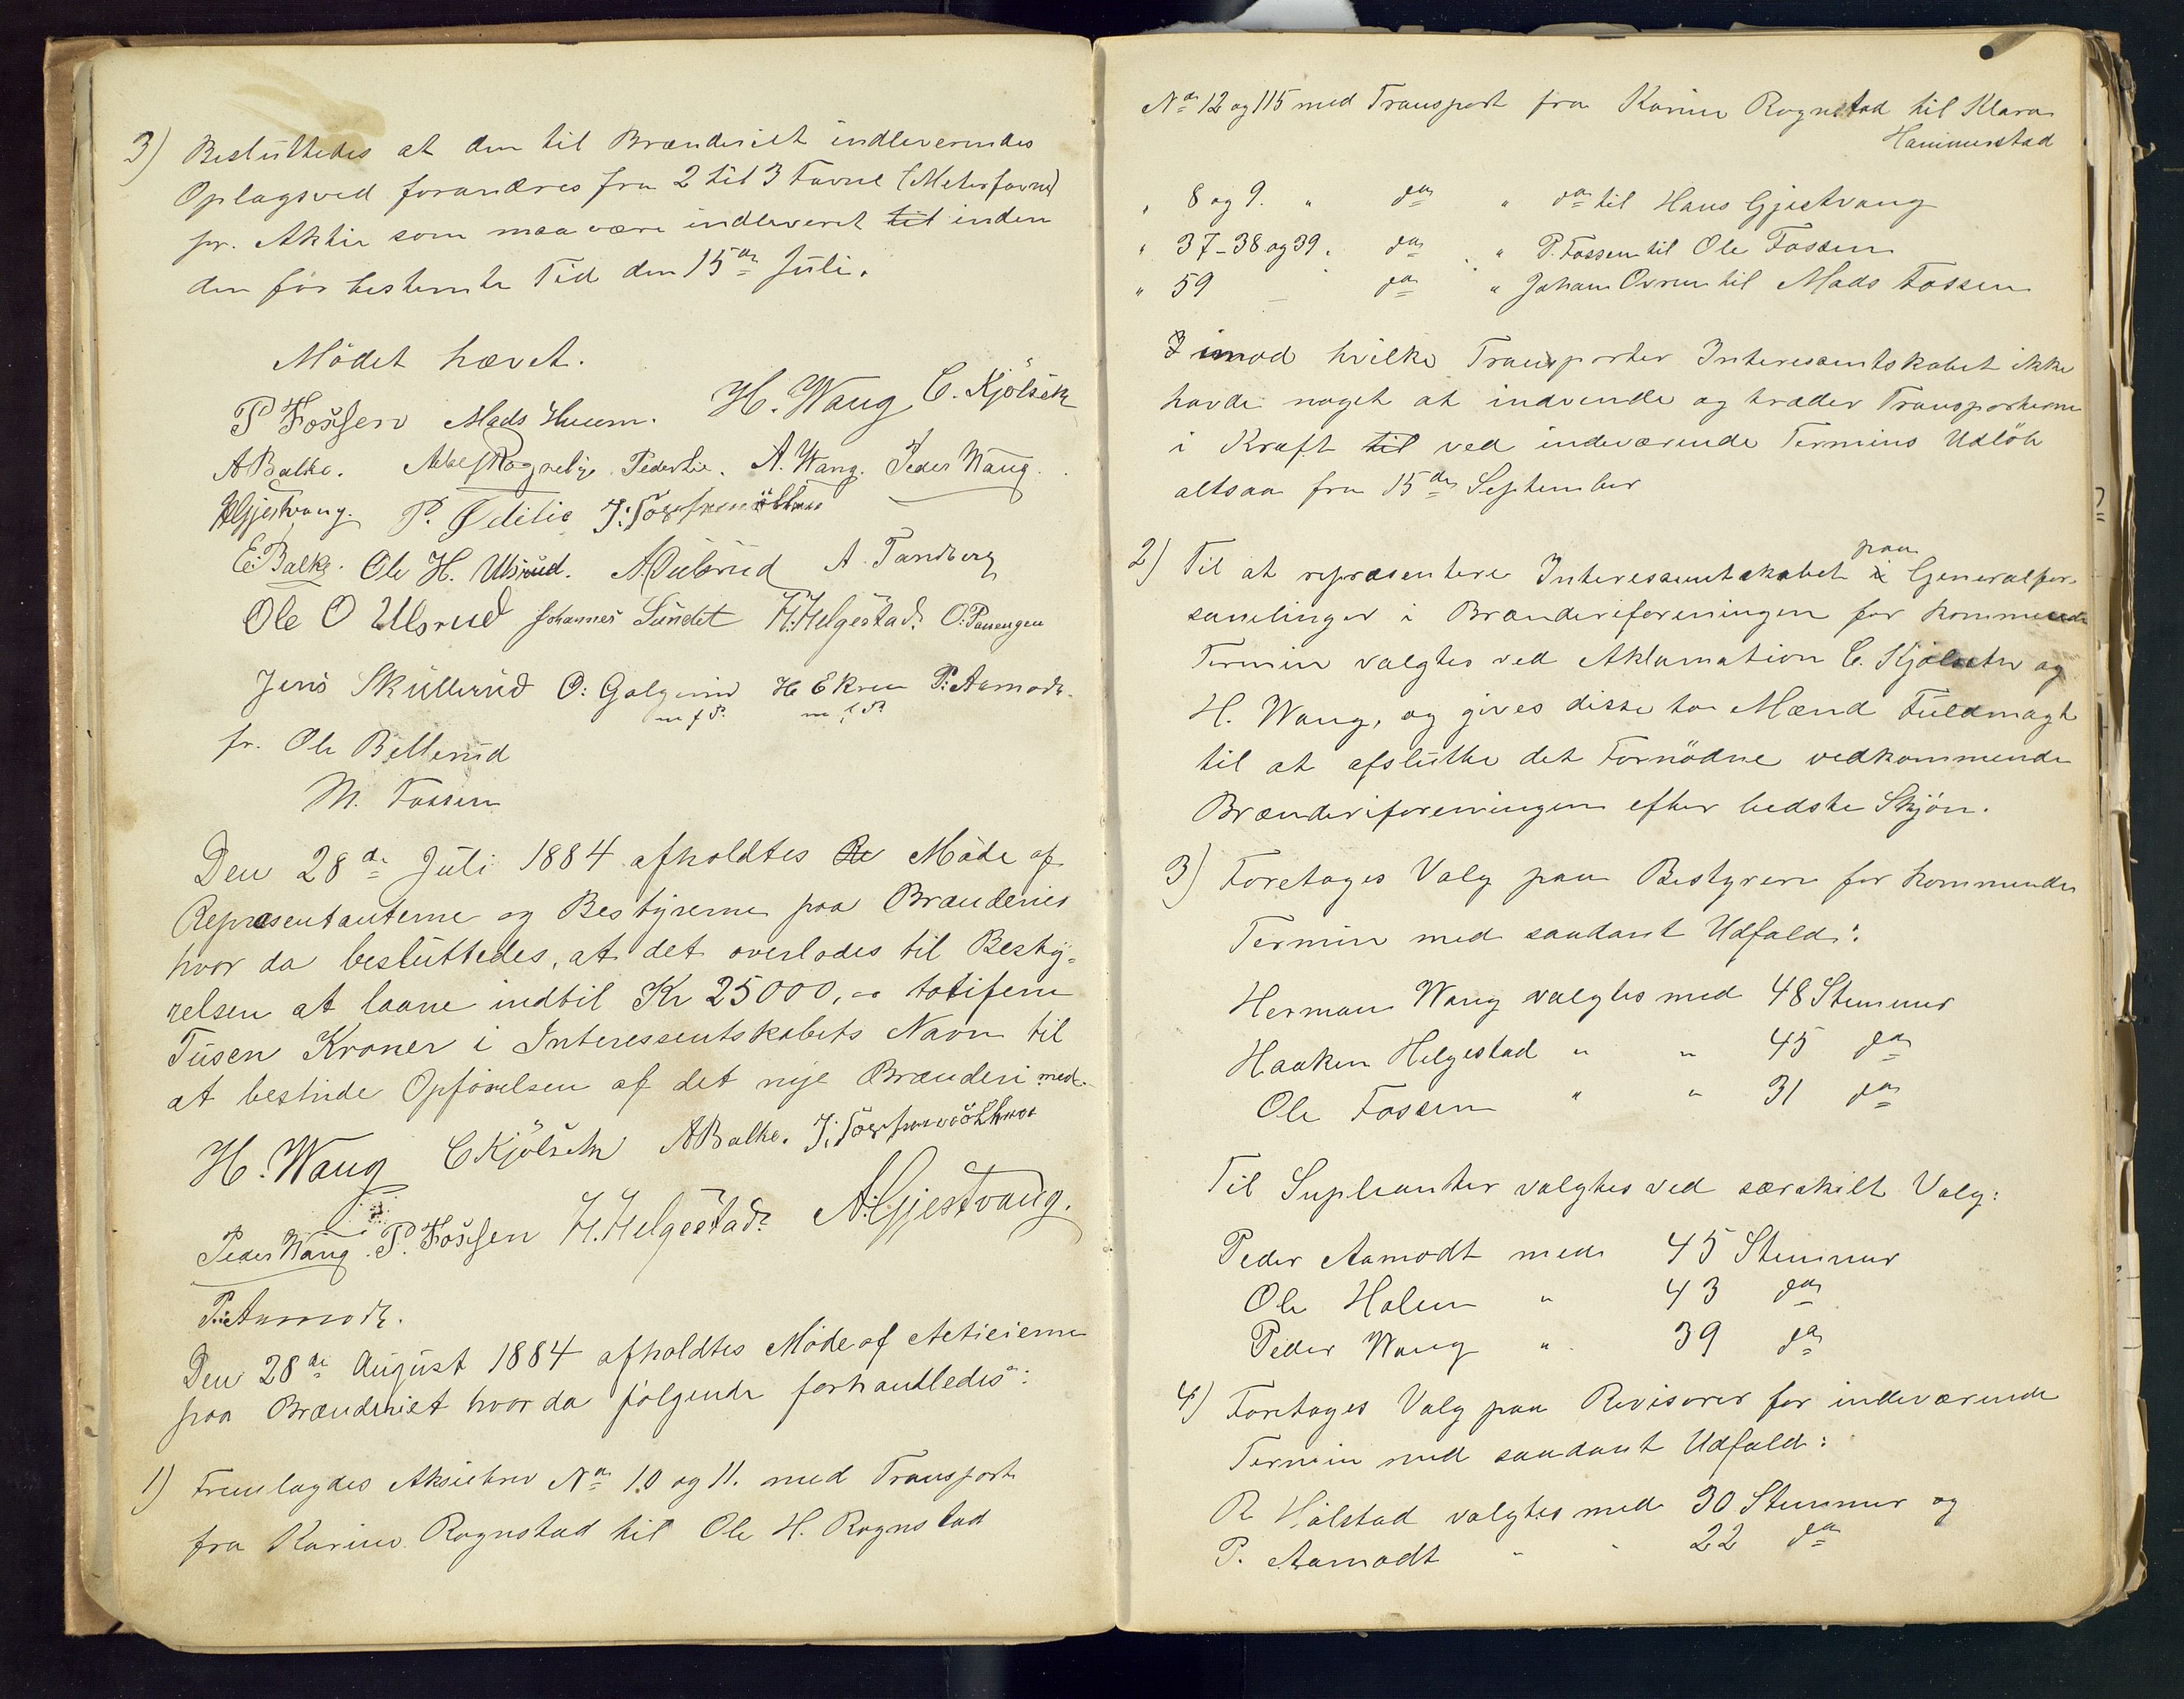 3) Beslüttedes at den til Brænderiet indleverendes
Oplagsved forandres fra 2 til 3 Favne (Meterfavne)
pr. Aktie som maa være indleveret til inden
den før bestemte Tid den 15de Júli.
Mödet hævet.
P Fossen Mads Huem. H. Wang C. Kjölseth
A Balke. Peder Lie. A. Wang. Peder Wang.
AGjestvang. P. Ødelie
E. Balke. Ole H. Ulsrud. A. Dúlsrüd A. Tandberg
Ole O Ulsrud Johannes Sündet H. Helgestad. O. Paunengen
Jens Sküllerüd O: Galgerud H Ekren P. Aamodt.
m f P. m f P.
fr. Ole Bellerüd
M. Fossen
Den 28de Júli 1884 afholdtes Re Möde af
Representanterne og Bestÿrerne paa Brænderiet
hvor da beslüttedes, at det overlodes til Bestÿ-
relsen at laane indtil Kr 25000,00 totifem
Tüsen Kroner i Interessentskabets Navn til
at bestride Opförelsen af det nye Brænderi med.
H. Wang C Kjölseth A Balke.
Peder Wang. P. Fossen H. Helgestad. A. Gjestvang.
P. Aamodt.
Den 28de Aügüst 1884 afholdtes Möde af Actieierne
paa Brænderiet hvor da følgende forhandledes:
1) Fremlagdes Aksiebrev No 10 og 11. med Transport
fra Karine Rognstad til Ole H. Rognstad
No 12 og 115 med Transport fra Karine Rognstad til Klara
Hammerstad
" 8 og 9. " do " do til Hans Gjestvang
" 37-38 og 39. do " P. Fossen til Ole Fossen
" 59 do " Johan Ovren til Mads Fossen
I imod hvilke Transporter Interessentskabet ikke
havde noget at indvende og træder Transporterne
i Kraft til ved indeværende Termins Udlöb
altsaa fra 15de September
2) Til at representere Interessentskabet i paa Generalfor-
samlinger i Brænderiforeningen for kommende
Termin valgtes ved Aklamation C. Kjölseth og
H. Wang, og gives disse to Mænd Füldmagt
til at afslütte det Fornödne vedkommende
Brænderiforeningen efter bedste Skjön.
3) Foretages Valg paa Bestyrere for kommende
Termin med saadant Udfald:
Herman Wang valgtes med 48 Stemmer
Haaken Helgestad " " 45 do
Ole Fossen " " 31 do
Til Supleanter valgtes ved særskilt Valg:
Peder Aamodt med 45 Stemmer
Ole Holen " 43 do
Peder Wang " 39 do
4) Foretages Valg paa Revisorer for indeværende
Termin med saadant Udfald:
R Hólstad valgtes med 30 Stemmer og
P. Aamodt " " 22 do